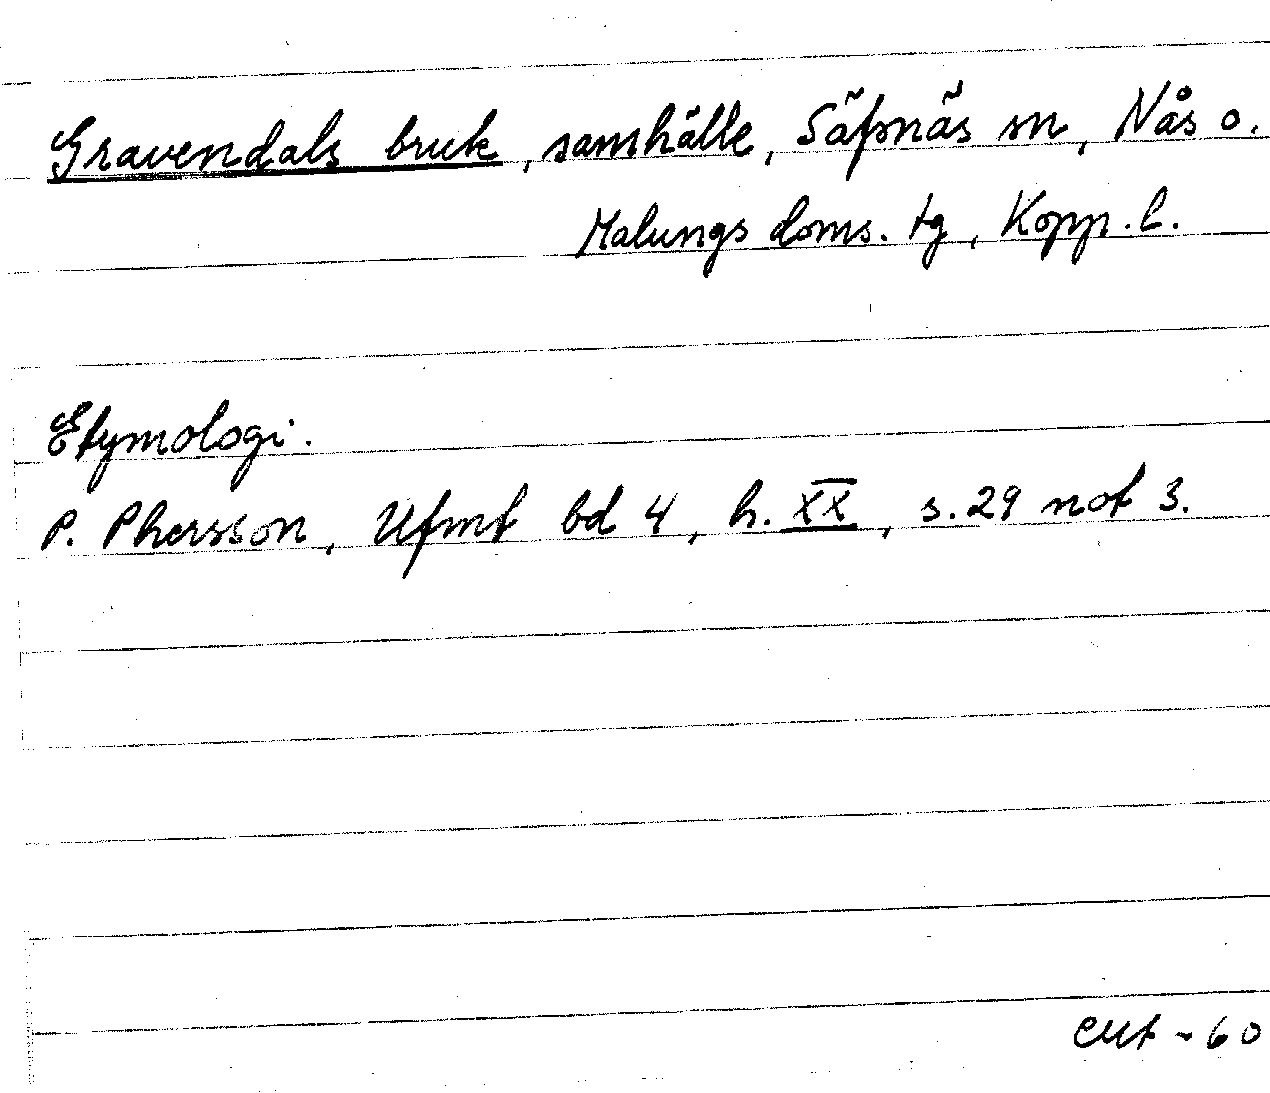 Gravendals bruk, samhälle, Säfsnäs sn, Nås o.
Malungs doms. tg, Kopp. l.
Etymologi.
P. Phersson, Ufmt bd 4, h. XX, s. 29 not 3.
-60